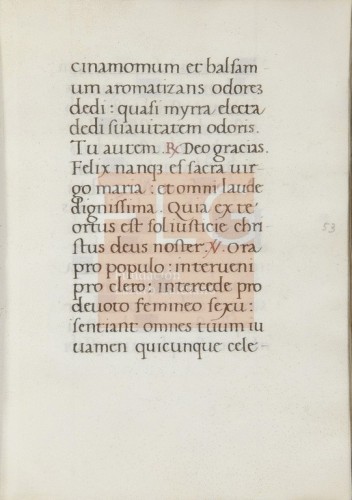 cinamomum et balsam
um aromatizans odorez
dedi : quasi myrra electa
dedi suauitatem odoris.
Tu autem. ℟ Deo gracias.
Felix nanqȝ es sacra uir
go maria : et omni laude
dignissima. Quia ex te
ortus est sol iusticie chri
stus deus noster. ℣. Ora
pro populo : interueni
pro clero : intercede pro
deuoto femineo sexu :
sentiant omnes tuum iu
uamen quicunque cele
53